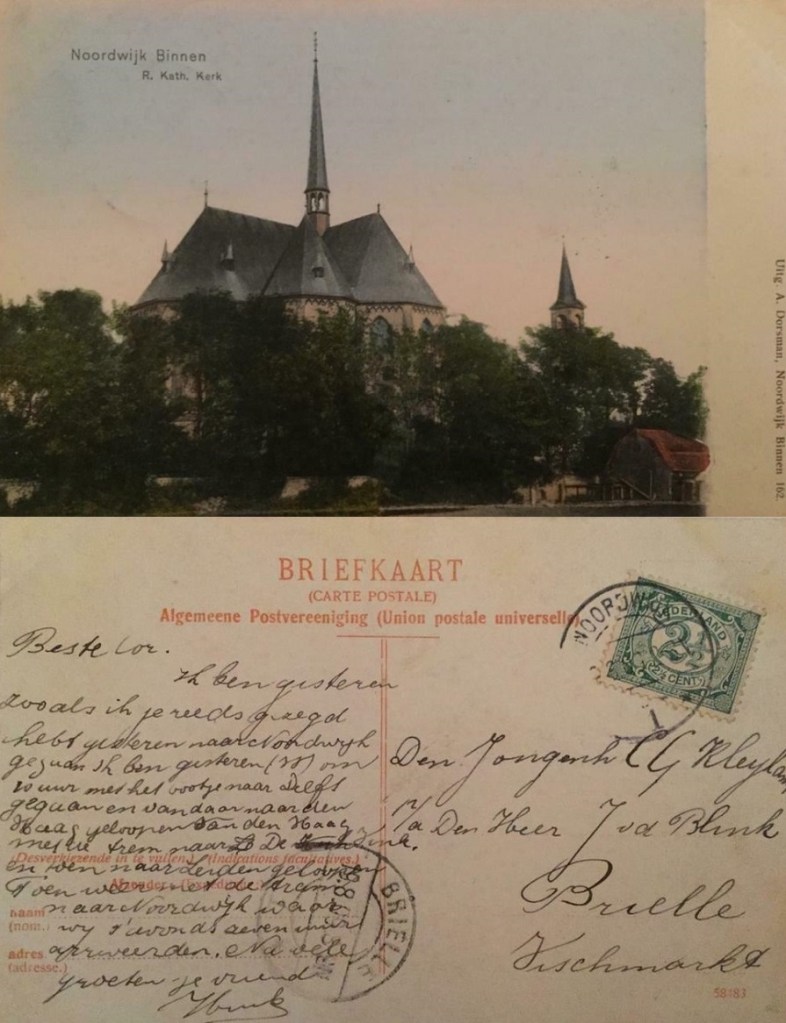 Noordwijk Binnen
R. Kath. Kerk
Uitg. A. Dorsman, Noordwijk Binnen 162.
BRIEFKAART
(CARTE POSTALE)
Algemeene Postvereeniging (Union postale universelle)
NOORDWIJK
NEDERLAND
2½
2½ CENT
Beste Cor.
Ik ben gisteren
zooals ik je reeds gezegd
hebt gisteren naar Noordwijk
gegaan Ik ben gisteren om
10 uur met het bootje naar Delft
gegaan en van daar naar den
Haag geloopen Van den Haag
met de trem naar De
(Desverkiezende in te vullen.) (Indications facultatives.)
en toen naar geloopen
Afzender
Toen weer met de trem
naam
(nom.)
naar Noordwijk waar
wij s'avonds zeven uur
adres
(adresse.)
arriveerden. Na vele
groeten je vriend
Henk
BRIELLE
Den Jongenh C G Kleyl
p/a Den Heer J vd Blink
Brielle
Vischmarkt
58183